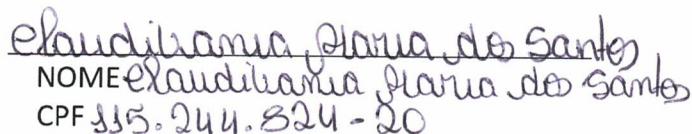 Claudilvania Maria dos Santos
NOME Claudilvania Maria dos Santos
CPF 115.244.824-20